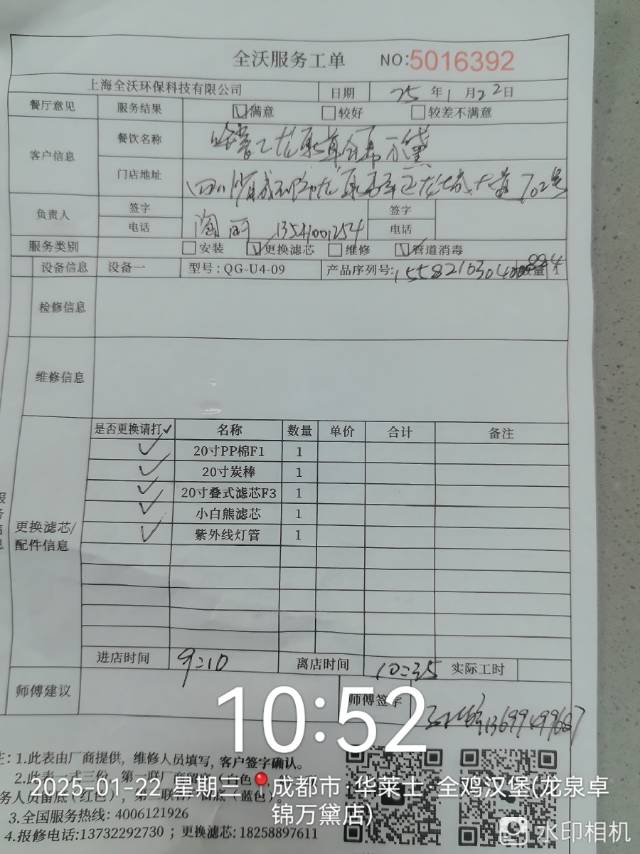 全沃服务工单 NO:5016392
上海全沃环保科技有限公司 日期 25年1月22日
餐厅意见 服务结果 ☑满意 □较好 □较差不满意
客户信息 餐饮名称
门店地址 702号
负责人 签字 陶丽 签字
电话 13541001254 电话
服务类别 □安装 ☑更换滤芯 □维修 ☑管道消毒
设备信息 设备一 型号:QG-U4-09 产品序列号:
检修信息
维修信息
是否更换请打✓ 名称 数量 单价 合计 备注
✓ 20寸PP棉F1 1
✓ 20寸炭棒 1
✓ 20寸叠式滤芯F3 1
✓ 小白熊滤芯 1
✓ 紫外线灯管 1
更换滤芯/
配件信息
进店时间 9:10 离店时间 10:35 实际工时
师傅建议 师傅签字
10:52
注:1.此表由厂商提供，维修人员填写，客户签字确认。
2.此表一式三份，第一联厂商留底(白色)
2025-01-22 星期三 成都市·华莱士·全鸡汉堡(龙泉卓
锦万黛店)
务人员留底(红色)，第三联客户留底(蓝色)。
3.全国服务热线: 4006121926
4.报修电话:13732292730 ; 更换滤芯: 18258897611
水印相机